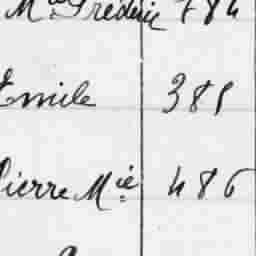 Mie Frédéric 784
Emile 381
Pierre Mie 486